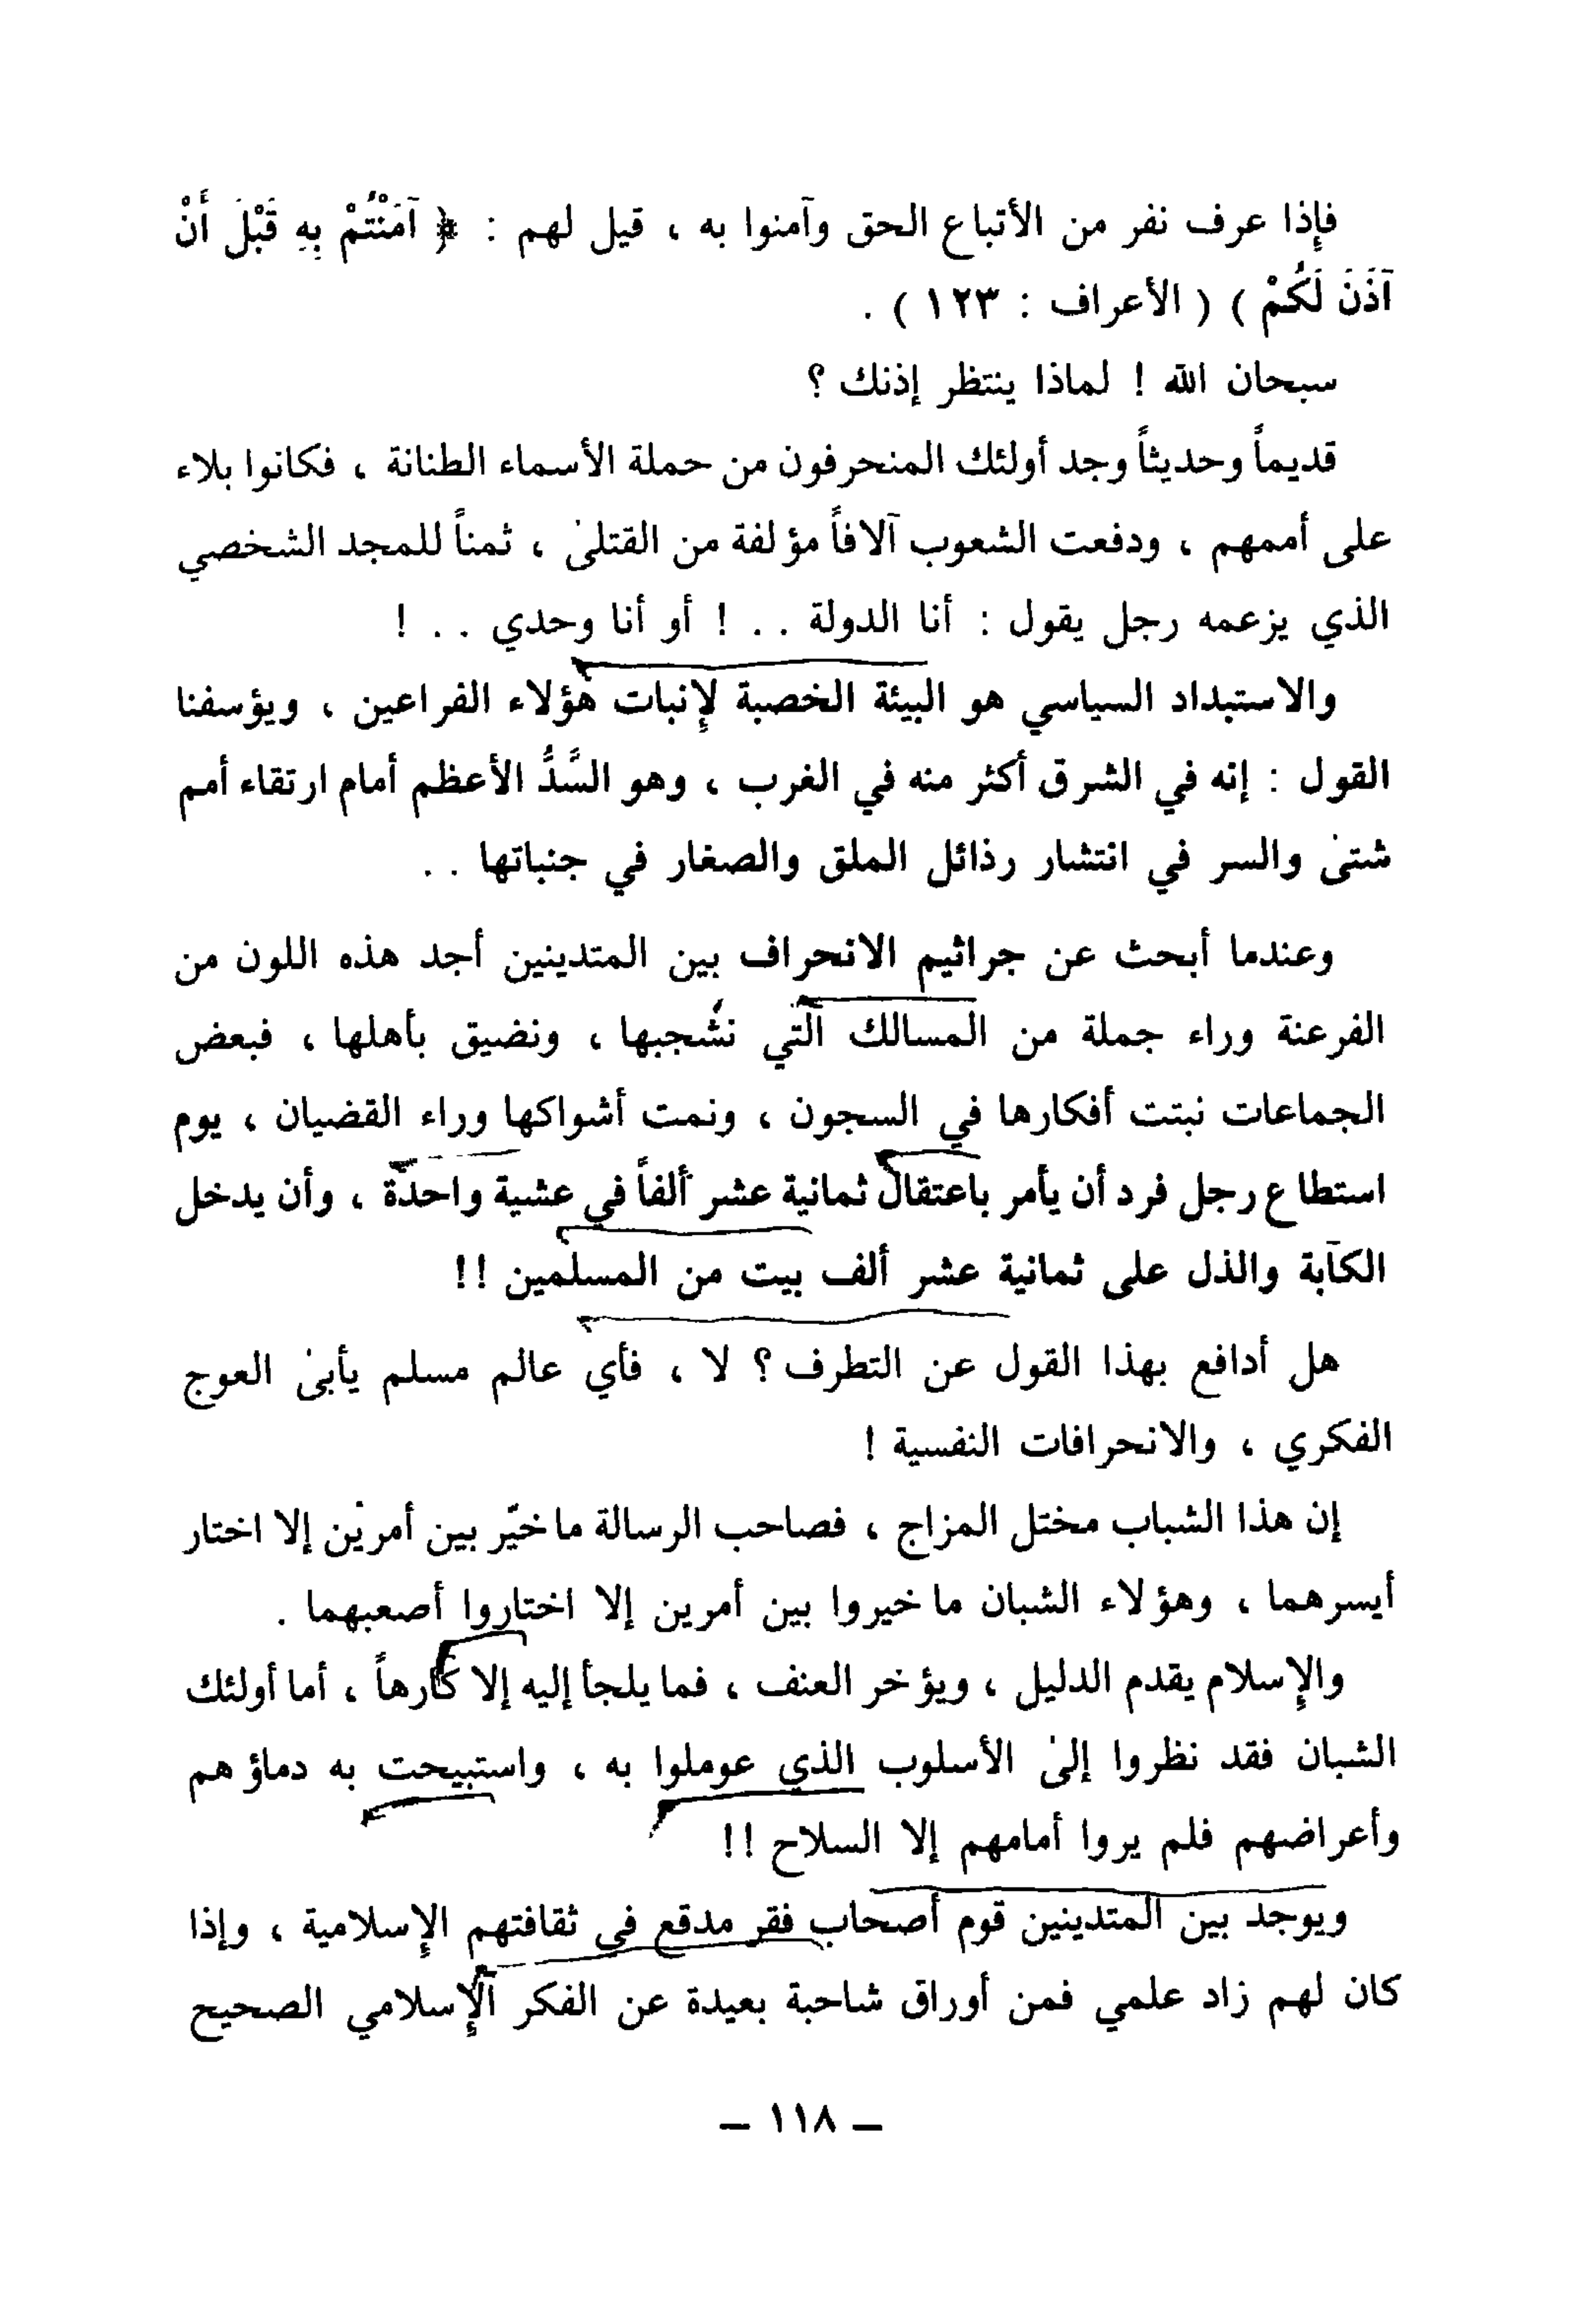 فإذا عرف نفر من الأتباع الحق وآمنوا به ، قيل لهم : ﴿ آمَنْتُمْ بِهِ قَبْلَ أَنْ
آذَنَ لَكُمْ ) ( الأعراف : ١٢٣ ) .
سبحان الله ! لماذا ينتظر إذنك ؟
قديماً وحديثاً وجد أولئك المنحرفون من حملة الأسماء الطنانة ، فكانوا بلاء
على أممهم ، ودفعت الشعوب آلافاً مؤلفة من القتلىٰ ، ثمناً للمجد الشخصي
الذي يزعمه رجل يقول : أنا الدولة . . ! أو أنا وحدي . . !
والاستبداد السياسي هو البيئة الخصبة لإنبات هؤلاء الفراعين ، ويؤسفنا
القول : إنه في الشرق أكثر منه في الغرب ، وهو السَّدُّ الأعظم أمام ارتقاء أمم
شتىٰ والسر في انتشار رذائل الملق والصغار في جنباتها . .
وعندما أبحث عن جراثيم الانحراف بين المتدينين أجد هذه اللون من
الفرعنة وراء جملة من المسالك التي نشْجبها ، ونضيق بأهلها ، فبعض
الجماعات نبتت أفكارها في السجون ، ونمت أشواكها وراء القضيان ، يوم
استطاع رجل فرد أن يأمر باعتقال ثمانية عشر ألفاً في عشية واحدة ، وأن يدخل
الكآبة والذل على ثمانية عشر ألف بيت من المسلمين !!
هل أدافع بهذا القول عن التطرف ؟ لا ، فأي عالم مسلم يأبىٰ العوج
الفكري ، والانحرافات النفسية !
إن هذا الشباب مختل المزاج ، فصاحب الرسالة ما خيّر بين أمريْن إلا اختار
أيسرهما ، وهؤلاء الشبان ما خيروا بين أمرين إلا اختاروا أصعبهما .
والإسلام يقدم الدليل ، ويؤخر العنف ، فما يلجأ إليه إلا كارهاً ، أما أولئك
الشبان فقد نظروا إلىٰ الأسلوب الذي عوملوا به ، واستبيحت به دماؤهم
وأعراضهم فلم يروا أمامهم إلا السلاح !!
ويوجد بين المتدينين قوم أصحاب فقر مدقع في ثقافتهم الإسلامية ، وإذا
كان لهم زاد علمي فمن أوراق شاحبة بعيدة عن الفكر الإسلامي الصحيح
– ١١٨ –